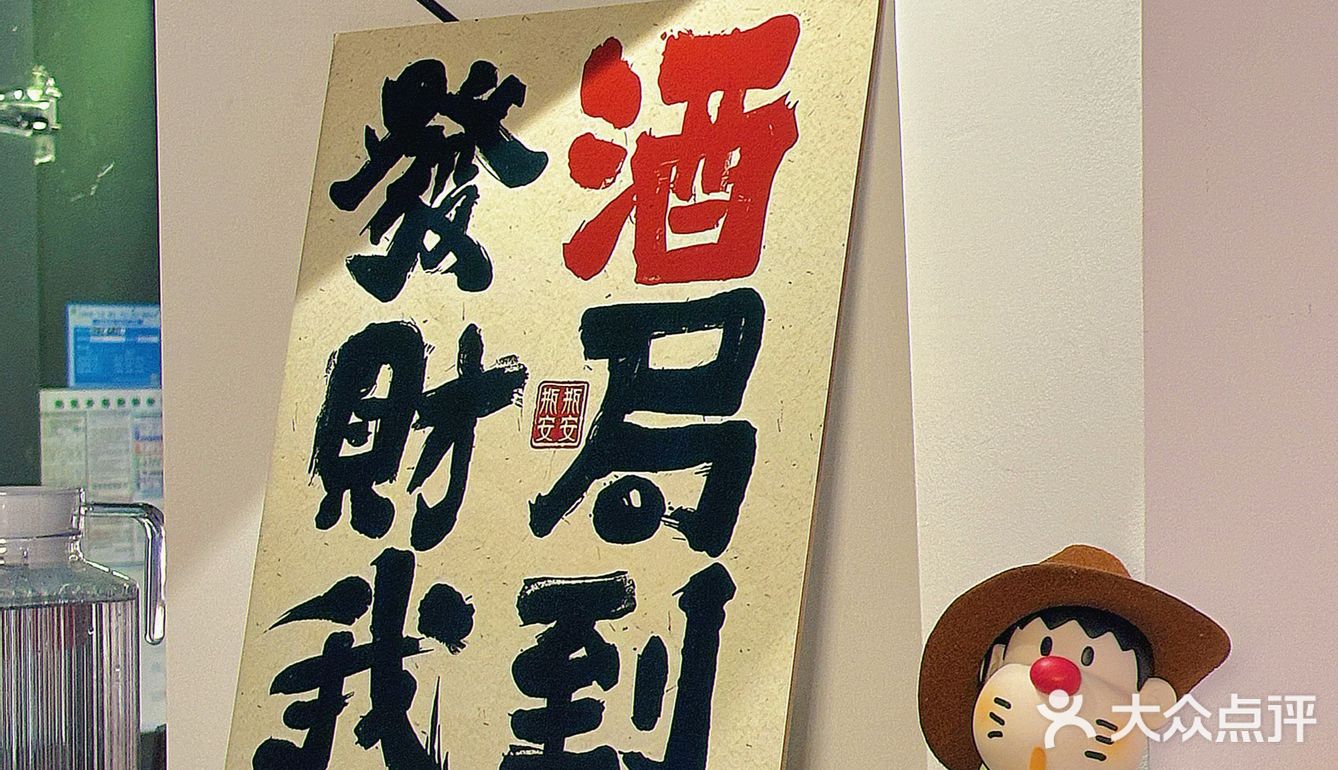 酒局到
發財我
瓶安
瓶安
大众点评